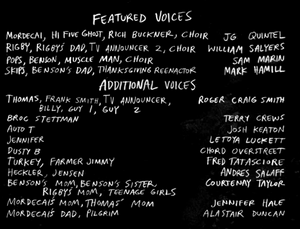 FEATURED VOICES
MORDECAI, HI FIVE GHOST, RICH BUCKNER, CHOIR JG QUINTEL
RIGBY, RIGBY'S DAD, TV ANNOUNCER 2, CHOIR WILLIAM SALYERS
POPS, BENSON, MUSCLE MAN, CHOIR SAM MARIN
SKIPS, BENSON'S DAD, THANKSGIVING REENACTOR MARK HAMILL
ADDITIONAL VOICES
THOMAS, FRANK SMITH, TV ANNOUNCER, ROGER CRAIG SMITH
BILLY, GUY 1, GUY 2
BROC STETTMAN TERRY CREWS
AUTO T JOSH KEATON
JENNIFER LETOYA LUCKETT
DUSTY B CHORD OVERSTREET
TURKEY, FARMER JIMMY FRED TATASCIORE
HECKLER, JENSEN ANDRES SALAFF
BENSON'S MOM, BENSON'S SISTER, COURTENAY TAYLOR
RIGBY'S MOM, TEENAGE GIRLS
MORDECAI'S MOM, THOMAS' MOM JENNIFER HALE
MORDECAI'S DAD, PILGRIM ALASTAIR DUNCAN